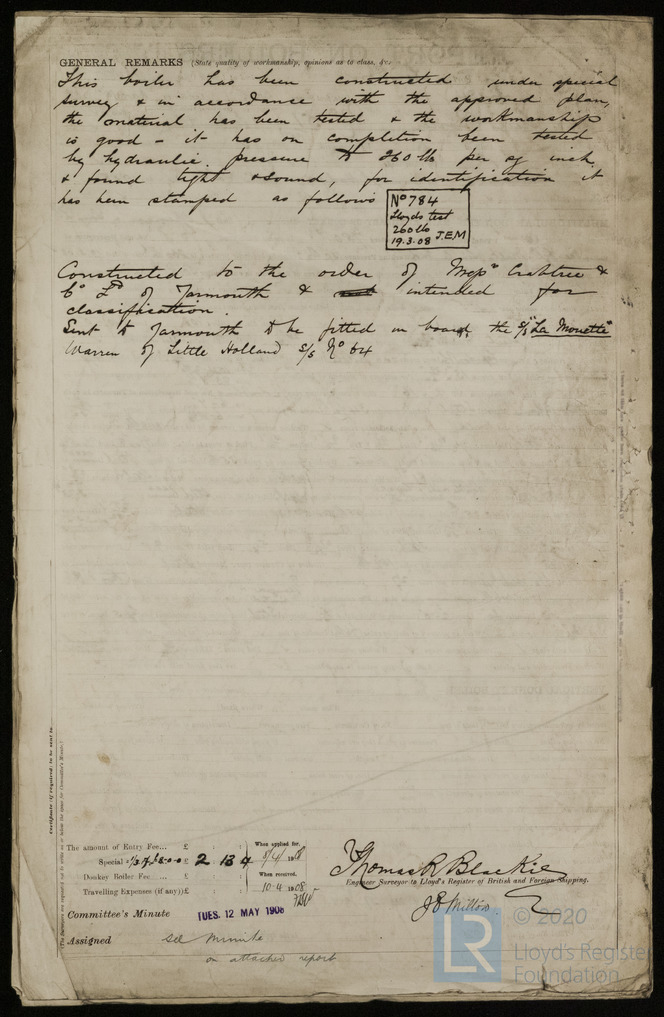 GENERAL REMARKS (State quality of workmanship, opinions as to class, &c.
This boiler has been constructed under special
survey & in accordance with the approved plan,
the material has been tested & the workmanship
is good - it has on completion been tested
by hydraulic pressure to 260 lb per sq inch,
& found tight & sound, for identification it
has been stamped as follows
No 784
Lloyds test
260 lb
19.3.08 J.E.M
Constructed to the order of Messrs Crabtree &
Co Ld of Yarmouth & intended for
classification.
Sent to Yarmouth to be fitted on board the s/s "La Mouette"
Warren of Little Holland s/s No 64
Certificate (if required) to be sent to
The amount of Entry Fee... £ : :
Special £ 2 13 4
Donkey Boiler Fee ... £ : :
Travelling Expenses (if any) £ : :
When applied for,
8/4/ 1908
When received,
10.4 1908
Thomas R Blackie
Engineer Surveyor to Lloyd's Register of British and Foreign Shipping.
Committee's Minute
TUES. 12 MAY 1908
Assigned
see minute
on attached report
LR
© 2020
Lloyd's Register
Foundation